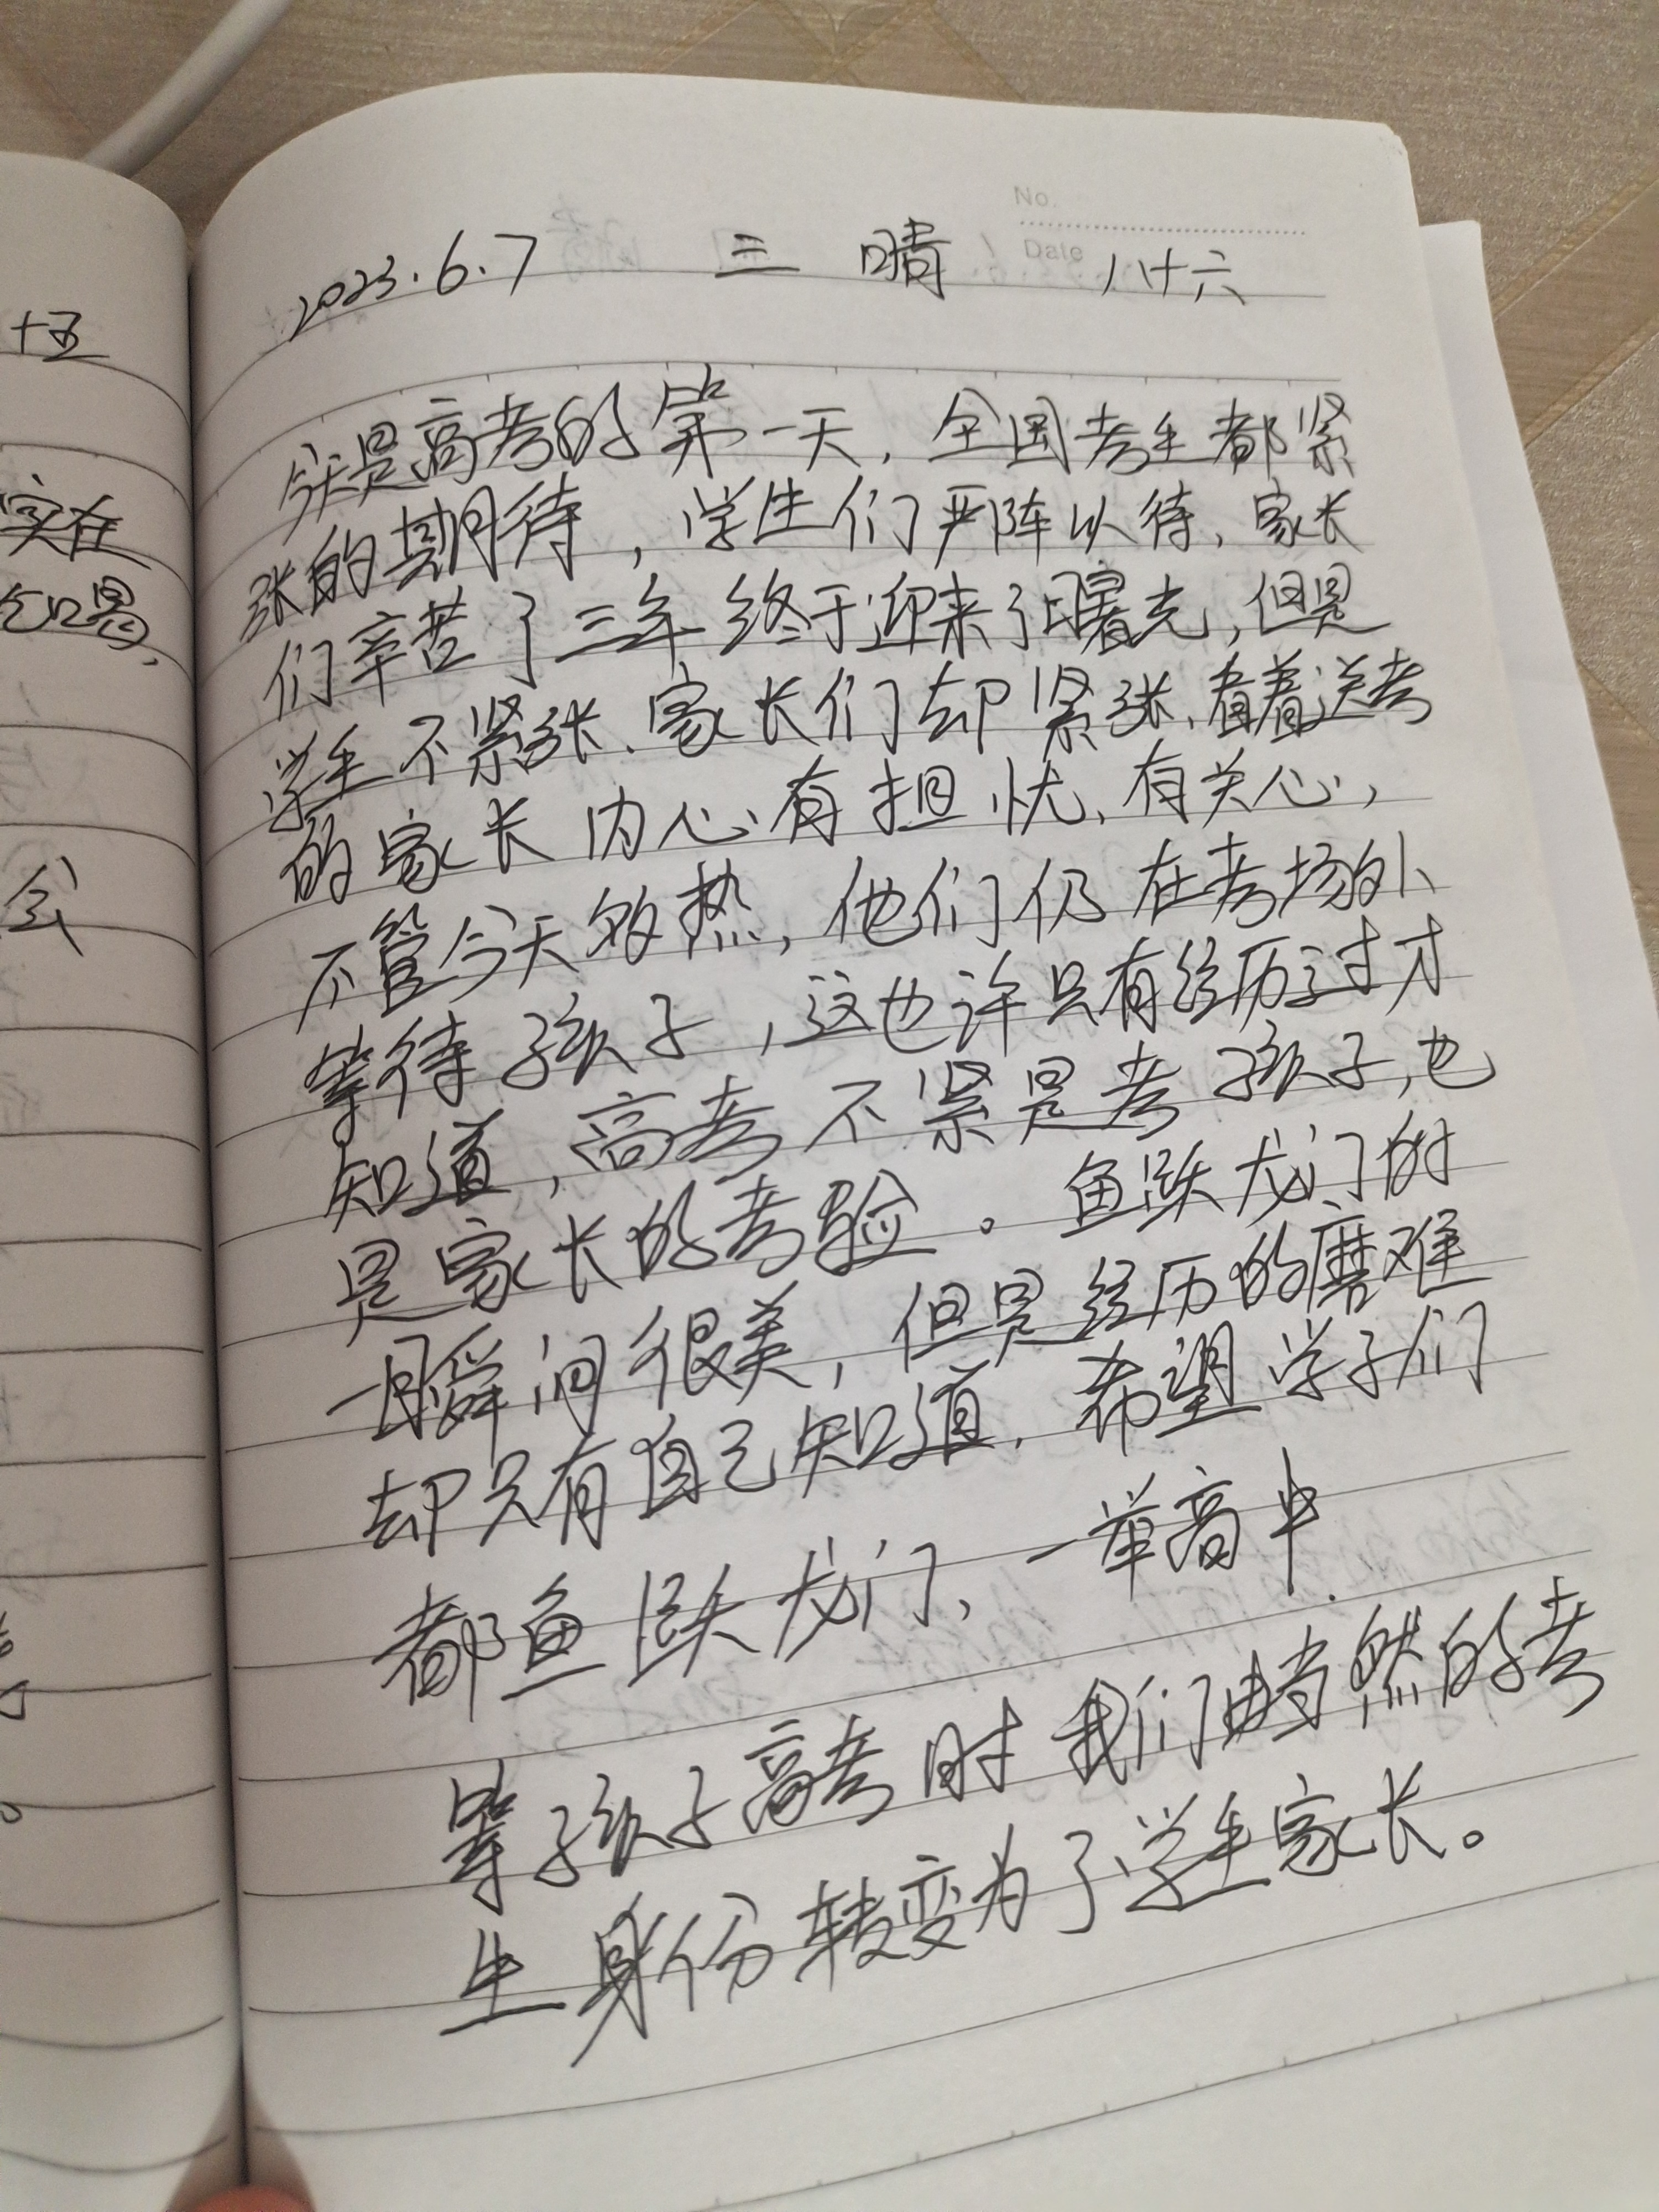 No.
Date
2023.6.7 三 晴 八十六
今天是高考的第一天，全国考生都紧
张的期待，学生们严阵以待，家长
们辛苦了三年终于迎来了曙光，但是
学生不紧张，家长们却紧张，看着送考
的家长内心有担忧，有关心，
不管今天多热，他们仍在考场外
等待孩子，这也许只有经历过才
知道，高考不紧是考孩子，也
是家长的考验。鱼跃龙门的
一瞬间很美，但是经历的磨难
却只有自己知道，希望学子们
都鱼跃龙门，一举高中.
等孩子高考时我们由当然的考
生身份转变为了学生家长。
十五
实在